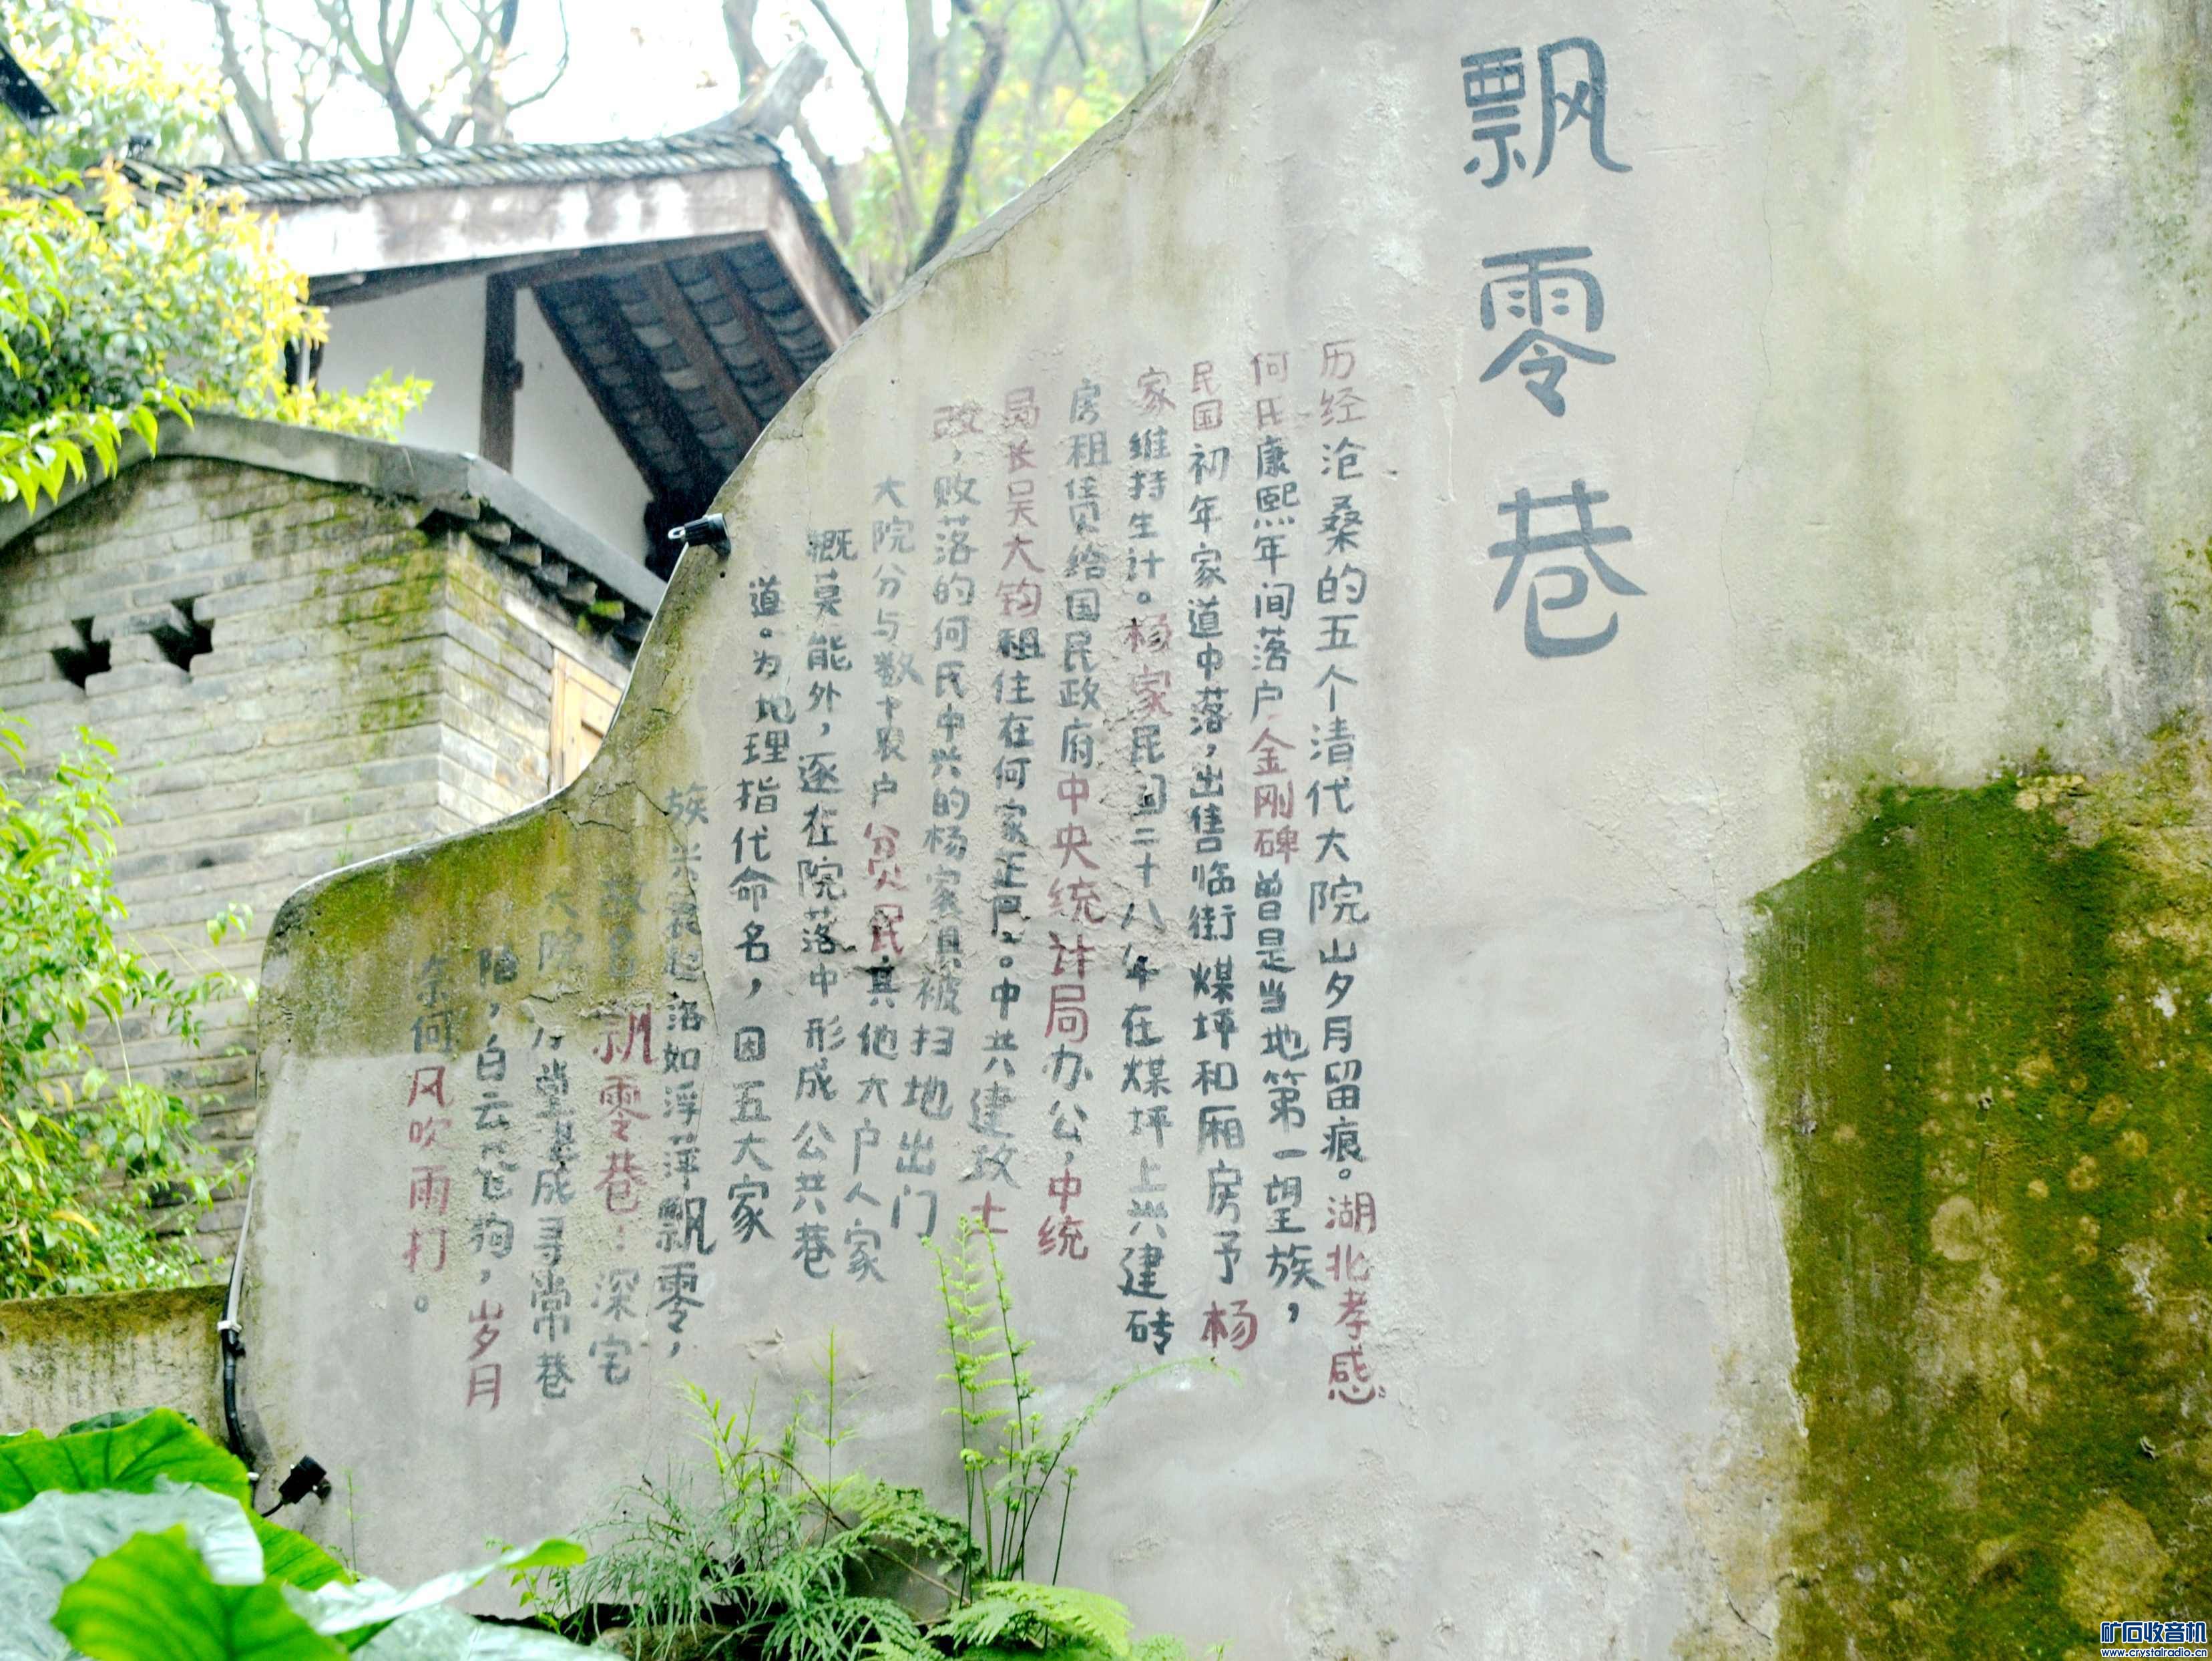 飘零巷
历经沧桑的五个清代大院岁月留痕。湖北孝感
何氏康熙年间落户金刚碑曾是当地第一望族，
民国初年家道中落，出售临街煤坪和厢房予杨
家维持生计。杨家民国二十八年在煤坪上兴建砖
房租赁给国民政府中央统计局办公，中统
局长吴大钧租住在何家正房。中共建政土
改，败落的何氏中兴的杨家具被扫地出门
大院分与数十农户贫民其他大户人家
概莫能外，逐在院落中形成公共巷
道。为地理指代命名，因五大家
族兴衰起落如浮萍飘零，
故名飘零巷：深宅
大院、厅堂变成寻常巷
陌，白云苍狗，岁月
奈何风吹雨打。
矿石收音机
www.crystalradio.cn